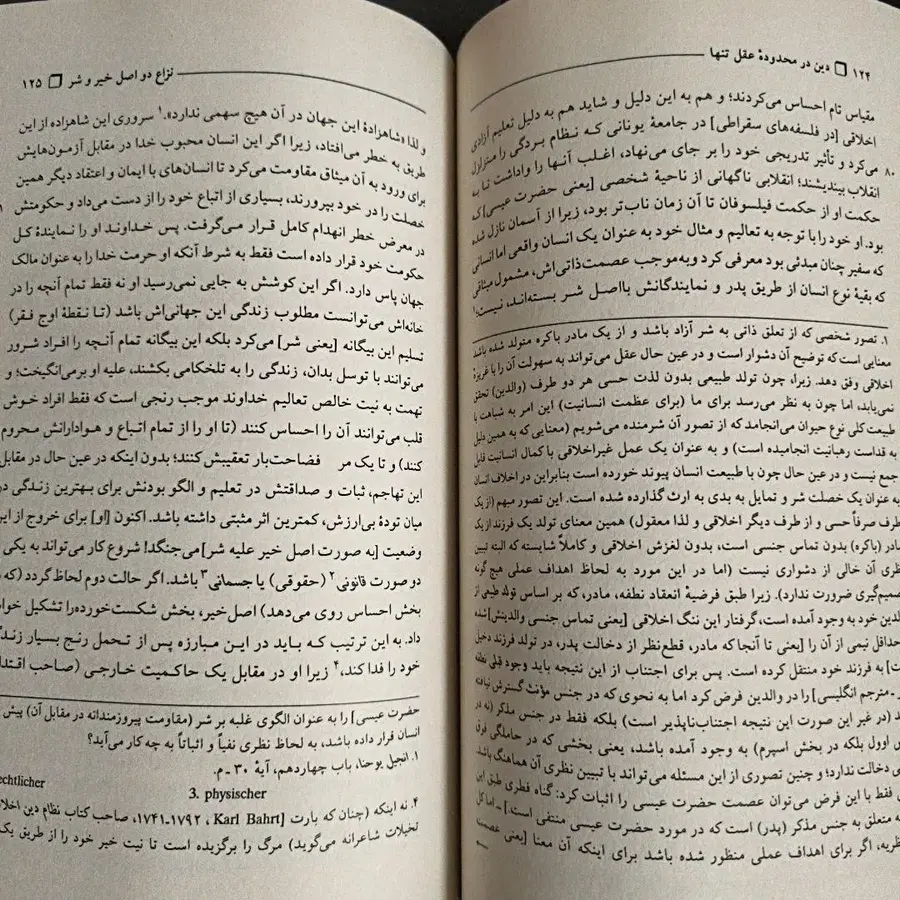 ۱۲۴ ❒ دین در محدودهٔ عقل تنها
مقیاس تام احساس می‌کردند؛ و هم به این دلیل و شاید هم به دلیل تعلیم آزادی
اخلاقی [در فلسفه‌های سقراطی] در جامعهٔ یونانی که نظام بردگی را متزلزل
۸۰ می‌کرد و تأثیر تدریجی خود را بر جای می‌نهاد، اغلب آنها را واداشت تا به
انقلاب بیندیشند؛ انقلابی ناگهانی از ناحیهٔ شخصی [یعنی حضرت عیسی] که
حکمت او از حکمت فیلسوفان تا آن زمان ناب‌تر بود، زیرا از آسمان نازل شده
بود. او خود را با توجه به تعالیم و مثال خود به عنوان یک انسان واقعی اما انسانی
که سفیر چنان مبدئی بود معرفی کرد و به‌موجب عصمت‌ذاتی‌اش، مشمول میثاقی
که بقیهٔ نوع انسان از طریق پدر و نمایندگانش بااصل شر بسته‌اند، نیست۱
۱. تصور شخصی که از تعلق ذاتی به شر آزاد باشد و از یک مادر باکره متولد شده باشد
معنایی است که توضیح آن دشوار است و در عین حال عقل می‌تواند به سهولت آن را با غریزهٔ
اخلاقی وفق دهد. زیرا، چون تولد طبیعی بدون لذت حسی هر دو طرف (والدین) تحقق
نمی‌یابد، اما چون به نظر می‌رسد برای ما (برای عظمت انسانیت) این امر به شباهت با
طبیعت کلی نوع حیوان می‌انجامد که از تصور آن شرمنده می‌شویم (معنایی که به همین دلیل
به قداست رهبانیت انجامیده است) و به عنوان یک عمل غیراخلاقی با کمال انسانیت قابل
جمع نیست و در عین حال چون با طبیعت انسان پیوند خورده است بنابراین در اخلاف انسان
به عنوان یک خصلت شر و تمایل به بدی به ارث گذارده شده است. این تصور مبهم (از یک
طرف صرفاً حسی و از طرف دیگر اخلاقی و لذا معقول) همین معنای تولد یک فرزند از یک
مادر (باکره) بدون تماس جنسی است، بدون لغزش اخلاقی و کاملاً شایسته که البته تبیین
نظری آن خالی از دشواری نیست (اما در این مورد به لحاظ اهداف عملی هیچ گونه
تصمیم‌گیری ضرورت ندارد). زیرا طبق فرضیهٔ انعقاد نطفه، مادر، که بر اساس تولد طبیعی از
والدین خود به وجود آمده است، گرفتار این ننگ اخلاقی [یعنی تماس جنسی والدینش] شده
حداقل نیمی از آن را [یعنی تا آنجا که مادر، قطع‌نظر از دخالت پدر، در تولد فرزند دخیل
] به فرزند خود منتقل کرده است. پس برای اجتناب از این نتیجه باید وجود قبلی نطفه
ـ مترجم انگلیسی] را در والدین فرض کرد اما به نحوی که در جنس مؤنث گسترش نیافته
(در غیر این صورت این نتیجه اجتناب‌ناپذیر است) بلکه فقط در جنس مذکر (نه در
اوول بلکه در بخش اسپرم) به وجود آمده باشد، یعنی بخشی که در حاملگی فوق
دخالت ندارد؛ و چنین تصوری از این مسئله می‌تواند با تبیین نظری آن هماهنگ باشد.
فقط با این فرض می‌توان عصمت حضرت عیسی را اثبات کرد: گناه فطری طبق این
متعلق به جنس مذکر (پدر) است که در مورد حضرت عیسی منتفی است.] ـ اما کل
نظریه، اگر برای اهداف عملی منظور شده باشد برای اینکه آن معنا [یعنی عصمت
نزاع دو اصل خیر و شر ❒ ۱۲۵
و لذا «شاهزادهٔ این جهان در آن هیچ سهمی ندارد».۱ سروری این شاهزاده از این
طریق به خطر می‌افتاد، زیرا اگر این انسان محبوب خدا در مقابل آزمون‌هایش
برای ورود به آن میثاق مقاومت می‌کرد تا انسان‌های با ایمان و اعتقاد دیگر همین
خصلت را در خود بپرورند، بسیاری از اتباع خود را از دست می‌داد و حکومتش
در معرض خطر انهدام کامل قرار می‌گرفت. پس خداوند او را نمایندهٔ کل
حکومت خود قرار داده است فقط به شرط آنکه او حرمت خدا را به عنوان مالک
جهان پاس دارد. اگر این کوشش به جایی نمی‌رسید او نه فقط تمام آنچه را در
خانه‌اش می‌توانست مطلوب زندگی این جهانی‌اش باشد (تا نقطهٔ اوج فقر)
تسلیم این بیگانه [یعنی شر] می‌کرد بلکه این بیگانه تمام آنچه را افراد شرور
می‌توانند با توسل بدان، زندگی را به تلخکامی بکشند، علیه او برمی‌انگیخت؛ و
تهمت به نیت خالص تعالیم خداوند موجب رنجی است که فقط افراد خوش
قلب می‌توانند آن را احساس کنند (تا او را از تمام اتباع و هوادارانش محروم
کنند) و تا یک مر فضاحت‌بار تعقیبش کنند؛ بدون اینکه در عین حال در مقابل
این تهاجم، ثبات و صداقتش در تعلیم و الگو بودنش برای بهترین زندگی در
میان تودهٔ بی‌ارزش، کمترین اثر مثبتی داشته باشد. اکنون [او] برای خروج از این
وضعیت [به صورت اصل خیر علیه شر] می‌جنگد! شروع کار می‌تواند به یکی
دو صورت قانونی۲ (حقوقی) یا جسمانی۳ باشد. اگر حالت دوم لحاظ گردد (که
بخش احساس روی می‌دهد) اصل خیر، بخش شکست‌خورده‌را تشکیل خواهد
داد. به این ترتیب که باید در این مبارزه پس از تحمل رنج بسیار زندگی
خود را فدا کند،۴ زیرا او در مقابل یک حاکمیت خارجی (صاحب
حضرت عیسی] را به عنوان الگوی غلبه بر شر (مقاومت پیروزمندانه در مقابل آن) پیش
انسان قرار داده باشد، به لحاظ نظری نفیاً و اثباتاً به چه کار می‌آید؟
۱. انجیل یوحنا، باب چهاردهم، آیهٔ ۳۰ ـ م.
echtlicher
3. physischer
۴. نه اینکه (چنان که بارت [Karl Bahrt ، ۱۷۹۲-۱۷۴۱، صاحب کتاب نظام دین
تخیلات شاعرانه می‌گوید) مرگ را برگزیده است تا نیت خیر خود را از طریق یک